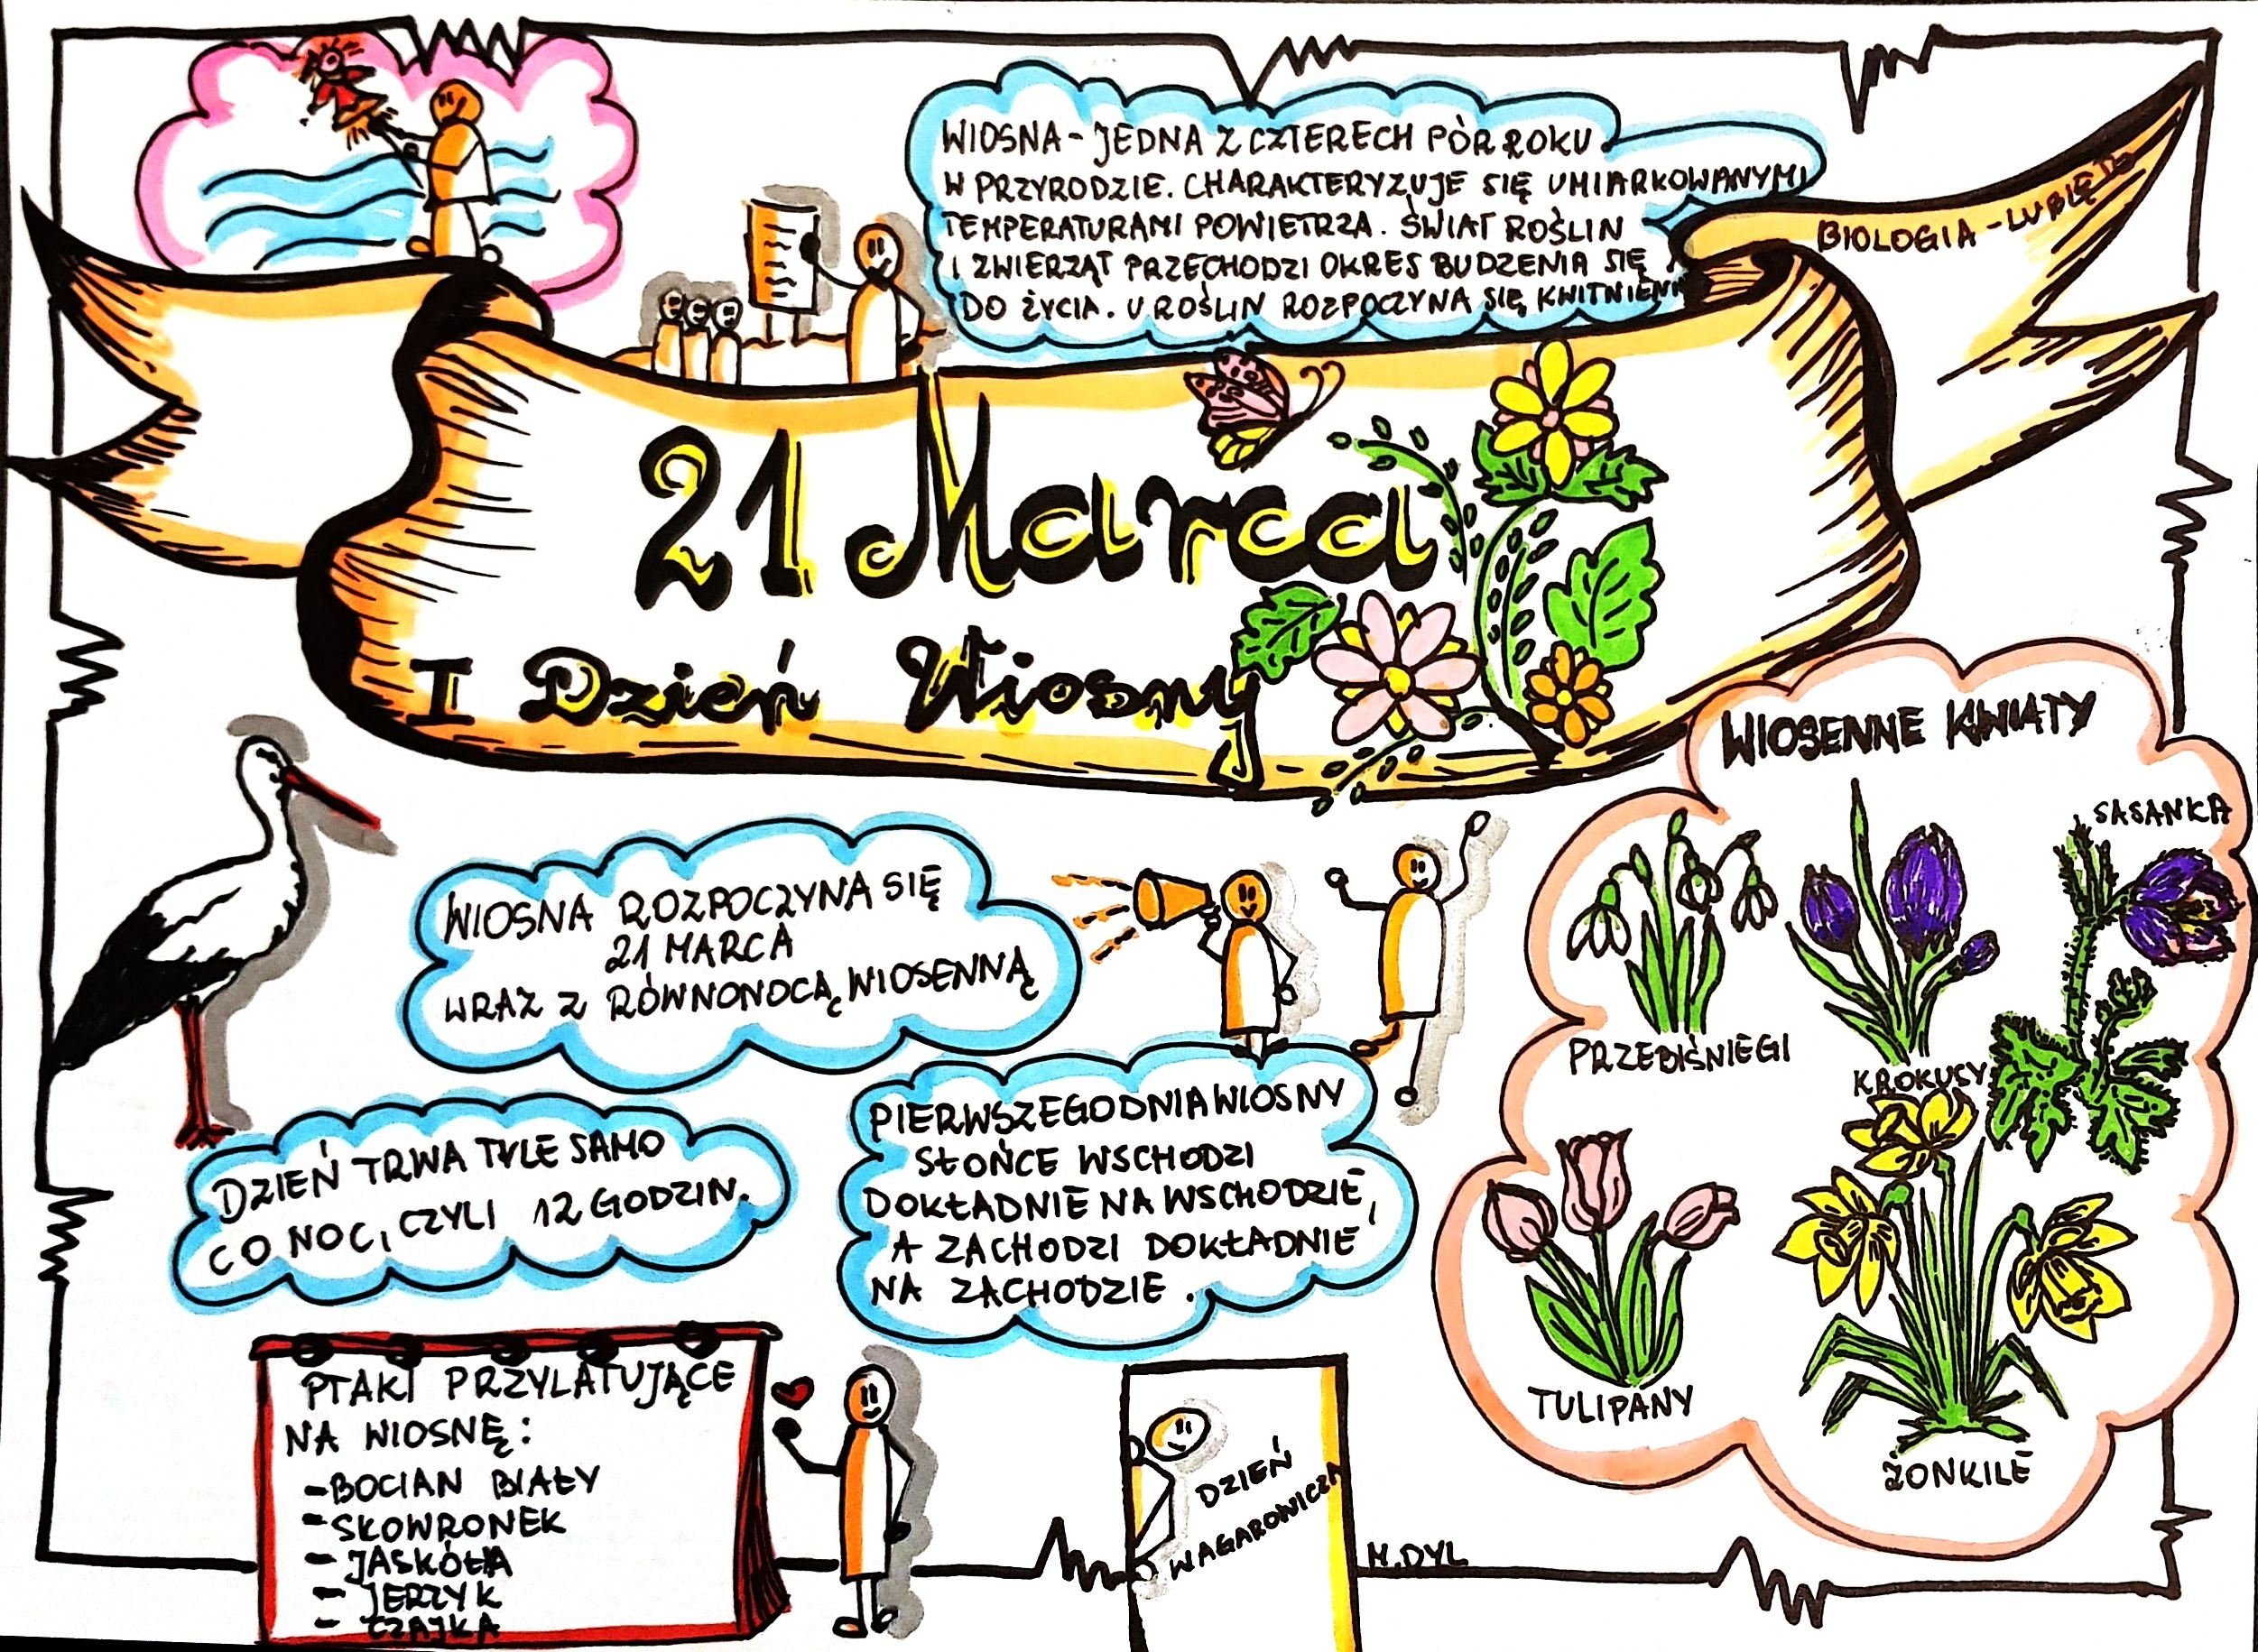 WIOSNA - JEDNA Z CZTERECH PÓR ROKU
W PRZYRODZIE. CHARAKTERYZUJE SIĘ UMIARKOWANYMI
TEMPERATURAMI POWIETRZA. ŚWIAT ROŚLIN
I ZWIERZĄT PRZECHODZI OKRES BUDZENIA SIĘ
DO ŻYCIA. U ROŚLIN ROZPOCZYNA SIĘ KWITNIENIE
BIOLOGIA - LUBIĘ TO
21 Marca
I Dzień Wiosny
WIOSNA ROZPOCZYNA SIĘ
21 MARCA
WRAZ Z RÓWNONOCĄ WIOSENNĄ
DZIEŃ TRWA TYLE SAMO
CO NOC, CZYLI 12 GODZIN.
PIERWSZEGO DNIA WIOSNY
SŁOŃCE WSCHODZI
DOKŁADNIE NA WSCHODZIE,
A ZACHODZI DOKŁADNIE
NA ZACHODZIE.
WIOSENNE KWIATY
SASANKA
PRZEBIŚNIEGI
KROKUSY
TULIPANY
ŻONKILE
PTAKI PRZYLATUJĄCE
NA WIOSNĘ:
- BOCIAN BIAŁY
- SKOWRONEK
- JASKÓŁKA
- JERZYK
- CZAJKA
DZIEŃ
WAGAROWICZA
M. DYL